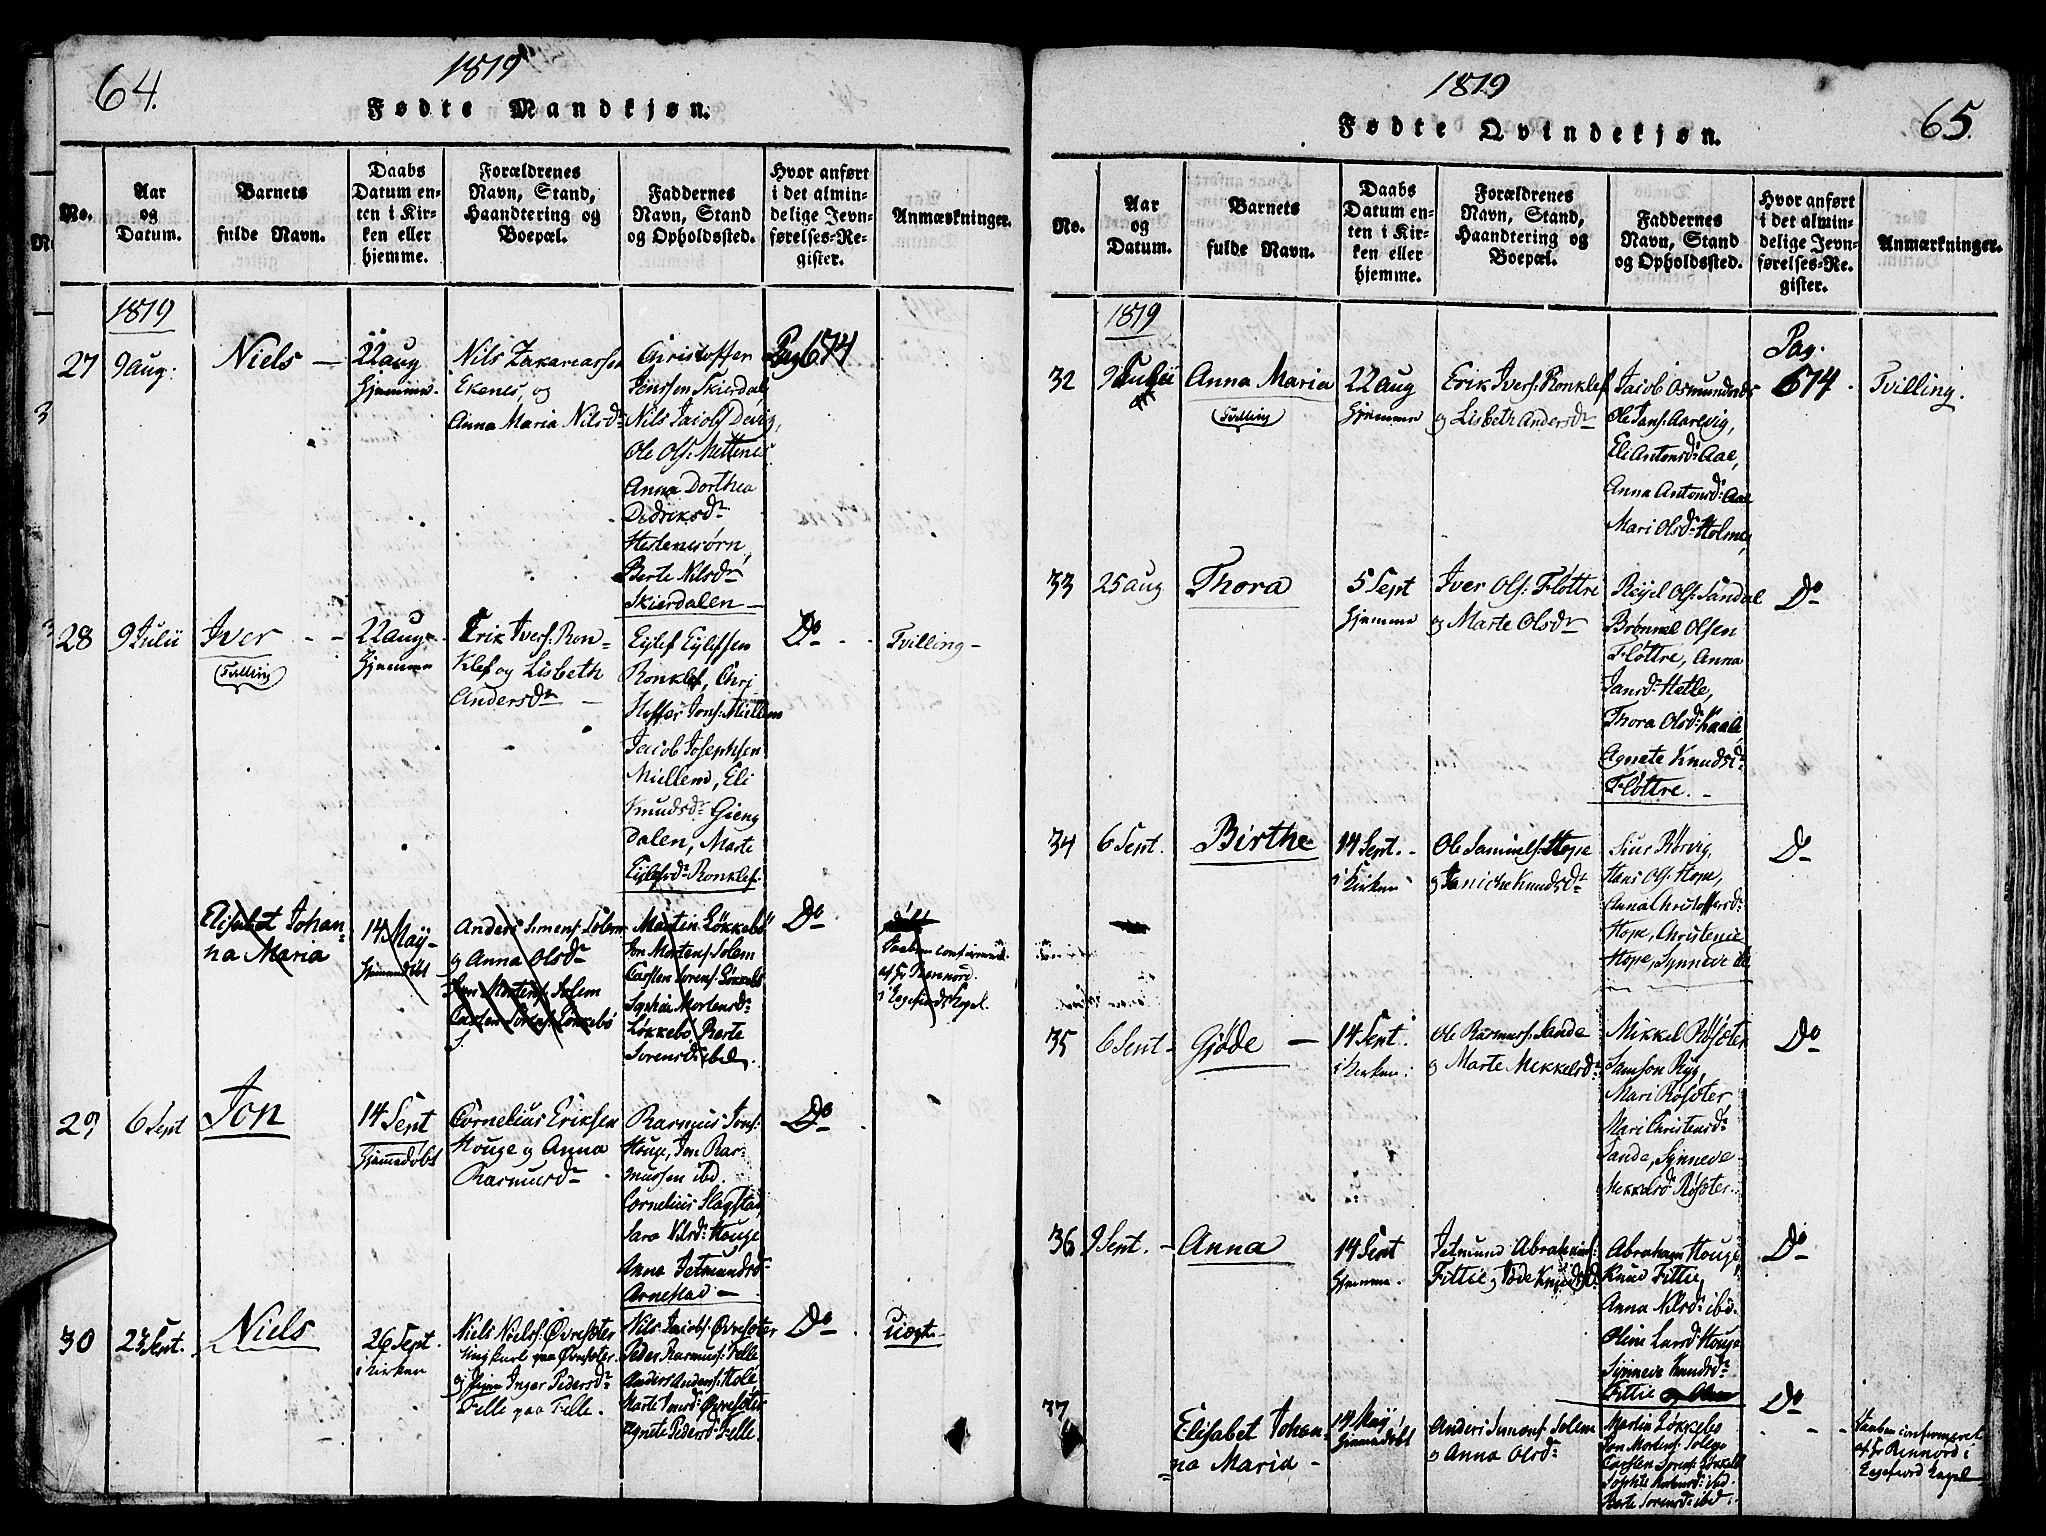 64.
1819
Fødte Mandkjøn.
No.
Aar
og
Datum.
Barnets
fulde Navn.
Daabs
Datum en-
ten i Kir-
ken eller
hjemme.
Forældrenes
Navn, Stand,
Haandtering og
Boepæl.
Faddernes
Navn, Stand
og Opholdssted.
Hvor anført
i det almin-
delige Jevn-
førelses-Re-
gister.
Anmærkninger.
1819
27
9 aug:
Niels —
22 aug
Hjemme.
Nils Zakariassen
Ekenes, og
Anna Maria Nilsdr
Christoffer
Jenssen Skierdal,
Nils Jacobs
Ole Ols:
Anna Dorthea
Dedriksdr
Berte Nilsdr
Skierdalen —
Pag 674
28
9 Julii
Iver
(Tvilling)
22 aug
Hjemme
Erik Ivers: Ron-
klef og Lisbeth
Andersdr —
Eylef Eylefsen
Ronklef, Chri
Jons: Miellem
Jacob Josephsen
Miellem, Eli
Knudsdr Gieng
dalen, Marte
Eylefsdr Ronklef.
Do
Tvilling —
Elisabet Johan-
na Maria
14 May —
Hjemmedøbt
Anders Simens: Solem
og Anna Olsdr
Jon Mortens: Solem
Carsten Sorens: Løkkebø
Martin Løkkebø
Jon Mortens: Solem
Carsten Sorens: Løkkebø
Sophia Mortensdr
Løkkebø Berte
Sorensdr ibd.
Do
Daaben confirmered
af Hr
i Eegefiords Capel
29
6 Sept
Jon
14 Sept
Hjemmedøbt
Cornelius Eriksen
Houge og Anna
Rasmusdr
Rasmus Jons:
Houge, Jon Ras-
mussen ibd.
Cornelius Slagstad
Sara Nilsdr Houge
Anna Jetmundsdr
Arnestad —
Do
30
23 Sept.
Niels
26 Sept.
i Kirken
Niels Niels: Øvresæter
Ungkarl paa Øvresæter
og Pigen Inger Pedersdr
Felle paa Felle.
Nils Jacobs: Øvresæter
Peder Rasmus: Felle
Anders Anders: Hole
Marte Jonsdr Øvresæter
Agnete Pedersdr Felle.
Do
Uægte
65.
1819
Fødte Qvindekjøn.
No.
Aar
og
Datum.
Barnets
fulde Navn.
Daabs
Datum en-
ten i Kir-
ken eller
hjemme.
Forældrenes
Navn, Stand,
Haandtering og
Boepæl.
Faddernes
Navn, Stand
og Opholdssted.
Hvor anført
i det almin-
delige Jevn-
førelses-Re-
gister.
Anmærkninger.
1819
32
9 Julii
Anna Maria
(Tvilling)
22 aug
Hjemme
Erik Ivers: Ronklef
og Lisbeth Andersdr
Jacob Osmundsds
Ole Jans: Aarevig,
Eli Antonsdr Aae,
Anna Antonsdr Aae
Mari Olsdr Holme,
Pag.
674.
Tvilling.
33
25 aug
Thora
5 Sept
Hjemme
Iver Ols: Fløttre
og Marte Olsdr
Reyel Ols: Sandal
Brønnel Olsen
Fløttre, Anna
Jansdr Hetle,
Thora Olsdr
Agnete Knudsdr
Fløttre. —
Do
34
6 Sept.
Birthe
14 Sept. —
i Kirken
Ole Samuels: Hope
og Janiche Knudsdr
Siur Rørvig,
Hans Ols: Hope,
Anna Christoffersdr
Hope, Christence
Hope, Synneve ibd
Do
35
6 Sept —
Gjøde —
14 Sept.
i Kirken.
Ole Rasmus: Sande
og Marte Mekkelsdr
Mikkel Røsæter
Samson Ryg,
Mari Røsæter
Mari Christensdr
Sande, Synneve
Mekkelsdr Røsæter.
Do
36
9 Sept. —
Anna
14 Sept
Hjemme.
Jetmund Abrahams:
Fittie og Gøde Knudsdr
Abraham Houge
Knud Fittie,
Anna Nilsdr ibd.
Oline Larsdr Houge
Synneve Knudsdr
Fittie
Do
37
Elisabet Johan-
na Maria —
14 May
Hjemmedøbt
Anders Simons: Solem
og Anna Olsdr
Martin Løkkebø
Jon Mortens: Solem
Carsten Sorens: Løkkebø
Sophie Mortensdr ibd
Berte Sorensdr ibd.
Do
Daaben confirmeret
af Hr Rennord i
Eegefiord Capel